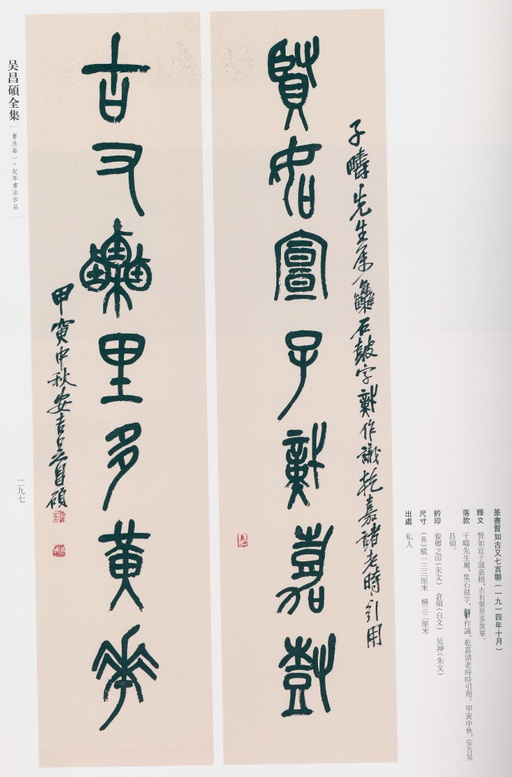 篆書賢如古又七言聯（一九一四年十月）
釋文　賢如宣子識嘉樹，古有栗里多黃華。
落款　子疇先生屬，集石鼓字。作識，乾嘉諸老時時引用。甲寅中秋，安吉吳
昌碩。
鈐印　俊卿之印（朱文）　倉碩（白文）　吴押（朱文）
尺寸　（各）縱一三三厘米　橫三二厘米
出處　私人
子疇先生屬集石鼓字作識乾嘉諸老時時引用
賢如宣子嘉樹
古又栗里多黃華
甲寅中秋安吉吳昌碩
吴昌碩全集
書法卷一·紀年書法作品
二九七